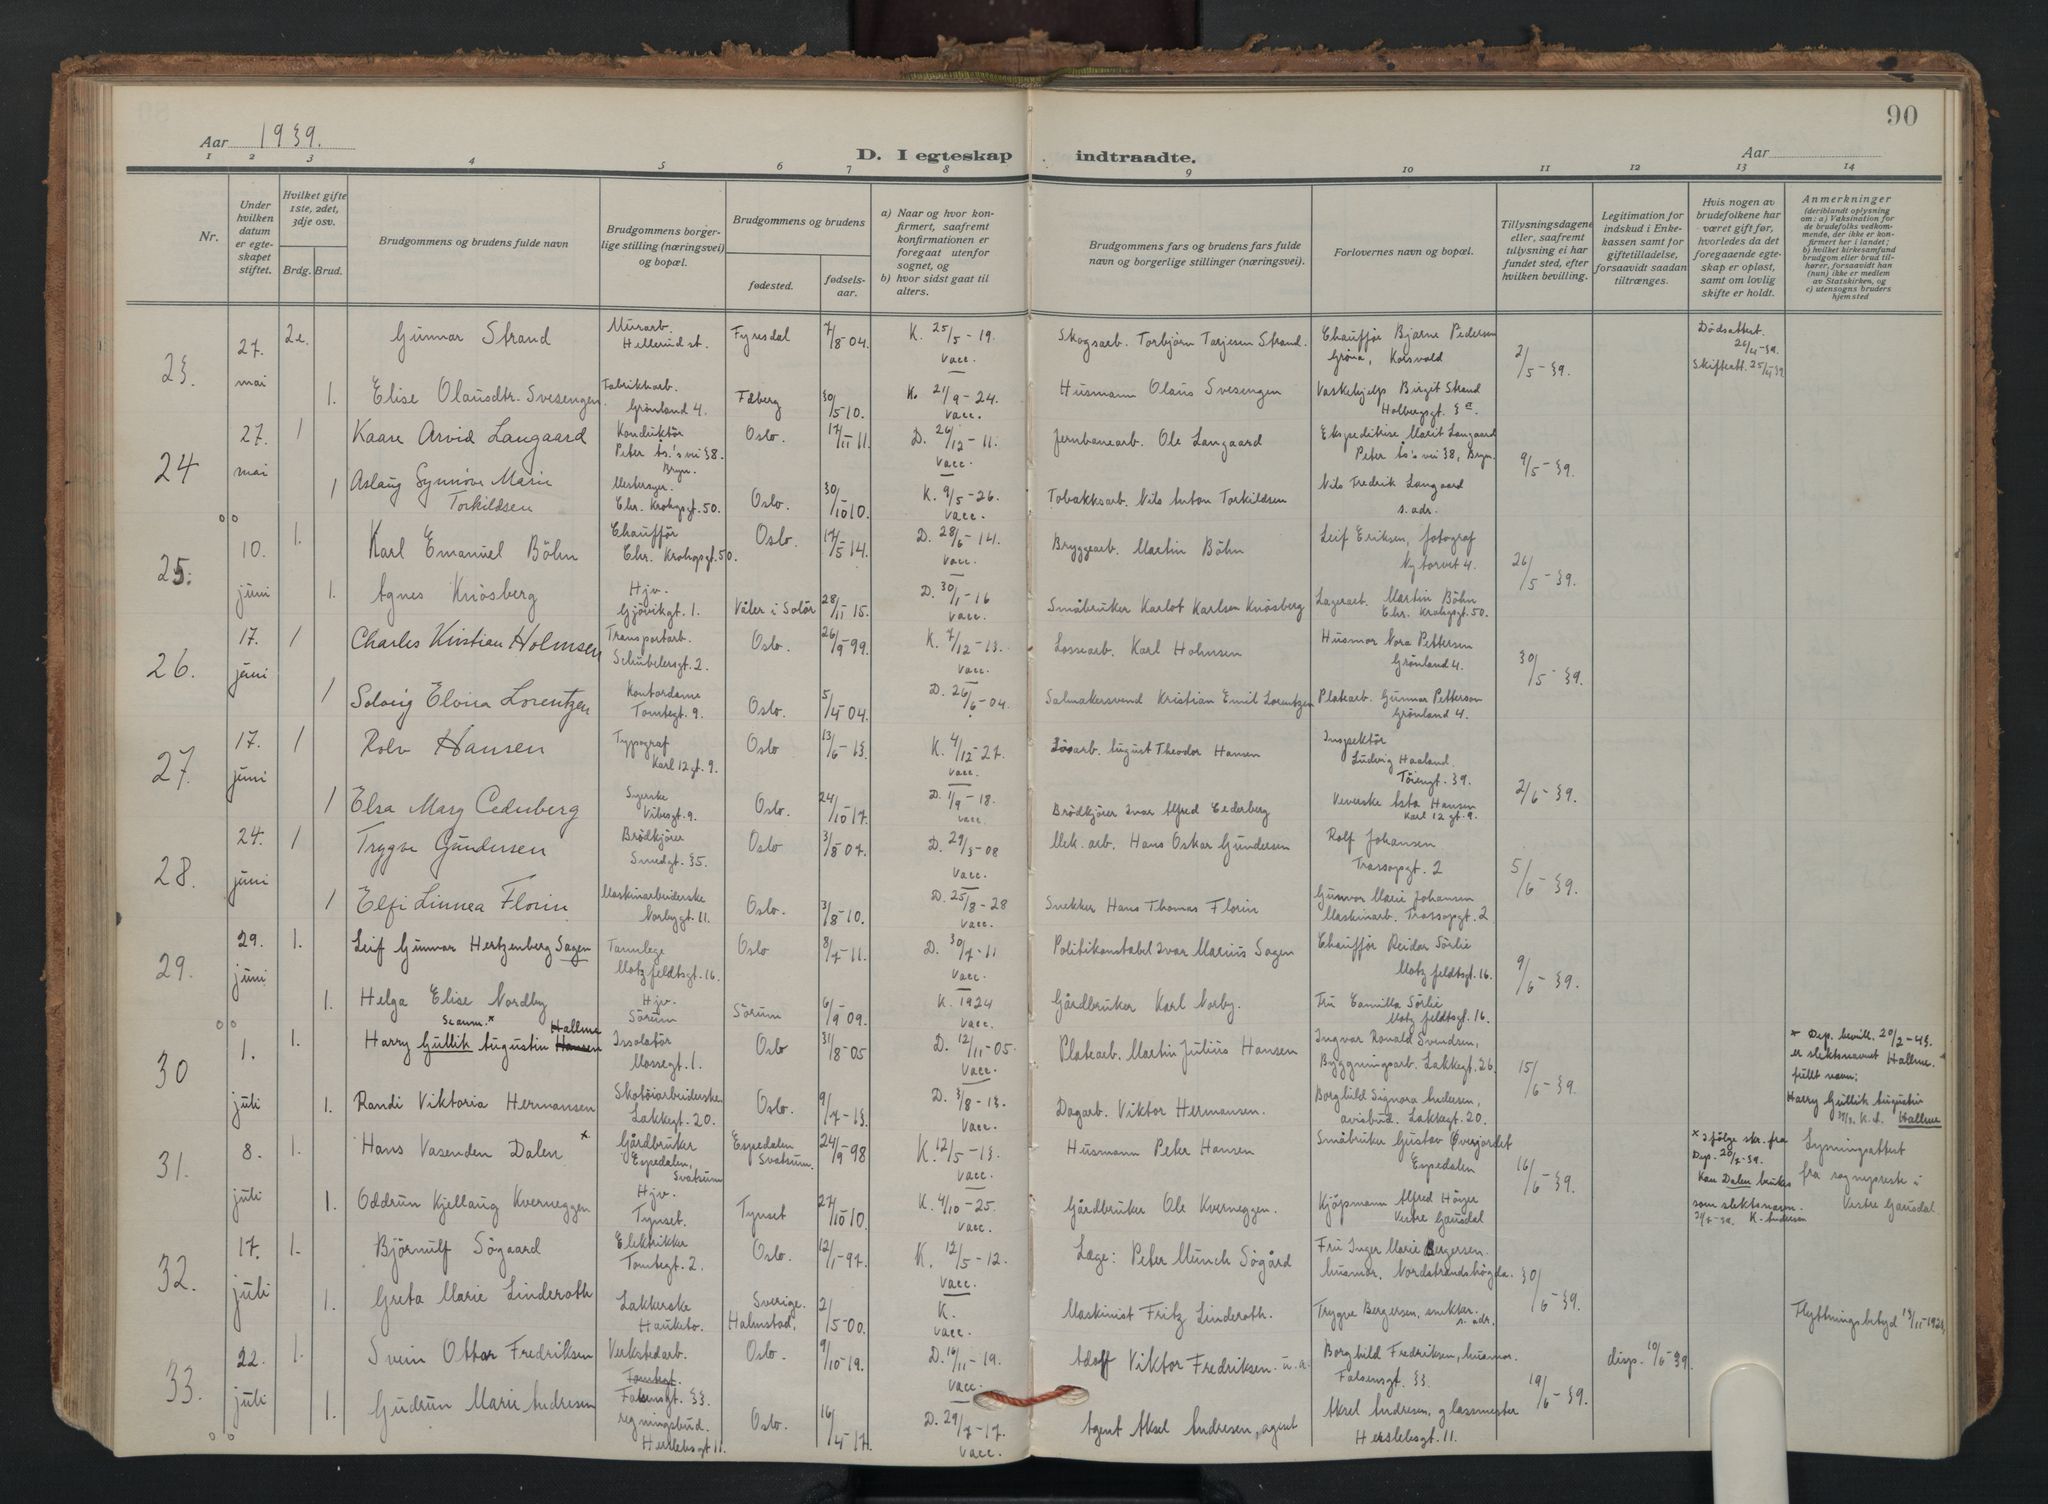 90
Aar 1939.
D. I egteskap indtraadte.
Aar
1 2 3 4 5 6 7 8 9 10 11 12 13 14
Nr.
Under hvilken datum er egteskapet stiftet.
Hvilket gifte 1ste, 2det, 3dje osv.
Brdg. Brud.
Brudgommens og brudens fulde navn
Brudgommens borgerlige stilling (næringsvei) og bopæl.
Brudgommens og brudens
fødested.
fødselsaar.
a) Naar og hvor konfirmert, saafremt konfirmationen er foregaat utenfor sognet, og
b) hvor sidst gaat til alters.
Brudgommens fars og brudens fars fulde navn og borgerlige stillinger (næringsvei).
Forlovernes navn og bopæl.
Tillysningsdagene eller, saafremt tillysning ei har fundet sted, efter hvilken bevilling.
Legitimation for indskud i Enkekassen samt for giftetilladelse, forsaavidt saadan tiltrænges.
Hvis nogen av brudefolkene har været gift før, hvorledes da det foregaaende egteskap er opløst, samt om lovlig skifte er holdt.
Anmerkninger (deriblandt oplysning om: a) Vaksination for de brudefolks vedkommende, der ikke er konfirmert her i landet; b) hvilket kirkesamfund brudgom eller brud tilhører, forsaavidt han (hun) ikke er medlem av Statskirken, og c) utensogns bruders hjemsted
23. 27. mai 2e. Gunnar Strand Murarb. Hellerud st. Fyresdal 7/8-04. K. 25/5-19. vacc. Skogsarb. Torbjørn Tarjesen Strand. Chauffør Bjarne Pedersen Grøna, Korsvald 2/5-39. Dødsattest. 26/4-39. Skifteatt. 25/4-39
1. Elise Olausdtr. Svesengen Fabrikkarb. Grønland 4. Fåberg 30/5 10. K. 21/9-24. vacc. Husmann Olaus Svesengen Vaskehjelp Birgit Strand Holbergsgt. 3a.
24 27. mai 1 Kaare Arvid Langaard Konduktör Peter Ås's vei 38. Bryn. Oslo. 17/11 11. D. 26/12-11. vacc. Jernbanearb. Ole Langaard Ekspeditrise Marit Langaard Peter Ås's vei 38, Bryn. 9/5-39.
1 Aslaug Synnöve Marie Torkildsen Chr. Krohgsgt. 50. Oslo. 30/10 10. K. 9/5-26. vacc. Tobakksarb. Nils Anton Torkildsen Nils Fredrik Langaard s. adr.
25. 10. juni 1. Karl Emanuel Böhn Chauffør Chr. Krohgsgt. 50. Oslo. 17/5 14. D. 28/6-14. vacc. Bryggearb. Martin Böhn Leif Eriksen, fotograf Nytorvet 4. 26/5-39.
1. Agnes Knösberg Hjv. Gjövikgt. 1. Våler i Solör 28/11 15. D. 30/1-16 vacc. Småbruker Karlot Karlsen Knösberg Lagerarb. Martin Böhn Chr. Krohgsgt. 50.
26. 17. juni 1 Charles Kristian Holmsen Transportarb. Schübelersgt. 2. Oslo. 26/9-99. K. 7/12-13. vacc. Lossearb. Karl Holmsen Husmor Nora Pettersen Grönland 4. 30/5-39.
1 Solveig Elvira Lorentzen Kontordame Tomtegt. 9. Oslo. 5/4-04. D. 26/6-04. Salmakersvend Kristian Emil Lorentzen Platearb. Gunnar Petterson Grönland 4.
27. 17. juni 1 Rolv Hansen Typograf Karl 12 gt. 9. Oslo 13/6-13. K. 4/12-27. vacc. Lösarb. August Theodor Hansen Inspektör Ludvig Haaland. Töiengt. 39. 2/6-39.
1 Elsa Mary Cederberg Syerske Vibesgt. 9. Oslo. 24/10 17. D. 1/9-18. vacc. Brödkjörer Ivar Alfred Cederberg Veverske Asta Hansen Karl 12 gt. 9.
28. 24. juni 1 Trygve Gundersen Brödkjörer Smedgt. 35. Oslo 3/8 07. D. 29/3-08 vacc. Mek. arb. Hans Oskar Gundersen Rolf Johansen Trasopgt. 2 5/6-39.
1 Elfi Linnea Florin Maskinarbeiderske Norbygt. 11. Oslo. 3/8-10. D. 25/8-28 vacc. Snekker Hans Thomas Florin Gunvor Marie Johansen Maskinarb. Trasopgt. 2
29. 29. juni 1. Leif Gunnar Hertzenberg Sagen Tannlege Motzfeldtsgt. 16. Oslo 8/7-11. D. 30/7-11 vacc. Politikonstabel Ivar Marius Sagen Chauffør Reidar Sörlie Motzfeldtsgt. 16. 9/6-39.
1. Helga Elise Nordby Hjv. Sörum Sörum 6/9 09. K. 1924 vacc. Gårdbruker Karl Norby. Fru Camilla Sörlie Motzfeldtsgt. 16.
30 1. juli 1. Harry Gullik Augustin Hansen Hallme Issolatör Mossegt. 1. Oslo 31/8-05 D. 12/11-05. vacc. Platearb. Martin Julius Hansen Ingvar Ronald Svendsen, Byggningsarb. Lakkegt. 26. 15/6-39. * Dep. bevill. 20/2-43. er slektsnavnet Hallme. fullt navn: Harry Gullik Augustin Hallme
1. Randi Viktoria Hermansen Skotöiarbeiderske Lakkegt. 20 Oslo. 9/7-13. D. 3/8-13. vacc. Dagarb. Viktor Hermansen. Borghild Signora Andersen, avisbud. Lakkegt. 20.
31. 8. juli 1. Hans Vasenden Dalen * Gårdbruker Espedalen, Svatsum Espedalen Svatsum. 24/9-98 K. 12/5-13. vacc. Husmann Peter Hansen Småbruker Gustav Överjordet Espedalen 16/6-39. * Ifølge skr. fra Dep. 20/7-39. kan Dalen brukes som slektsnavn. K. Andersen Lysningsattest fra sogneprest i Vestre Gausdal.
1. Oddrun Kjellaug Kverneggen Hjv. Tynset. Tynset 27/10 10. K. 4/10-25. vacc. Gårdbruker Ole Kverneggen. Kjöpmann Alfred Höyer Vestre Gausdal
32. 17. juli 1. Björnulf Sögaard Elektrikker Tomtegt. 2. Oslo. 12/1-97. K. 12/5-12. vacc. Læge: Peter Munch Sögård Fru Inger Marie Bergersen. husmor. Nordstrandshögda. 30/6-39.
1. Greta Marie Linderoth Lakkerske Hauketo. Sverige. Halmstad. 2/5-00. K. vacc. Maskinist Fritz Linderoth. Trygve Bergersen, snekker. s. adr. Flyttningsbetyd 13/11-1923.
33. 22. juli 1. Svein Ottar Fredriksen Verkstedarb. Tomtegt. Falsensgt. 33. Oslo. 9/10-19. D. 16/11-19. vacc. Adolf Viktor Fredriksen. Borghild Fredriksen, husmor. Falsensgt. 33. 19/6-39. disp. 10/6-39.
1. Gudrun Marie Andresen regningsbud. Herslebsgt 11. Oslo. 16/4-17. D. 29/7-17. vacc. Agent Aksel Andresen, agent Aksel Andresen, glassmester Herslebsgt. 11.